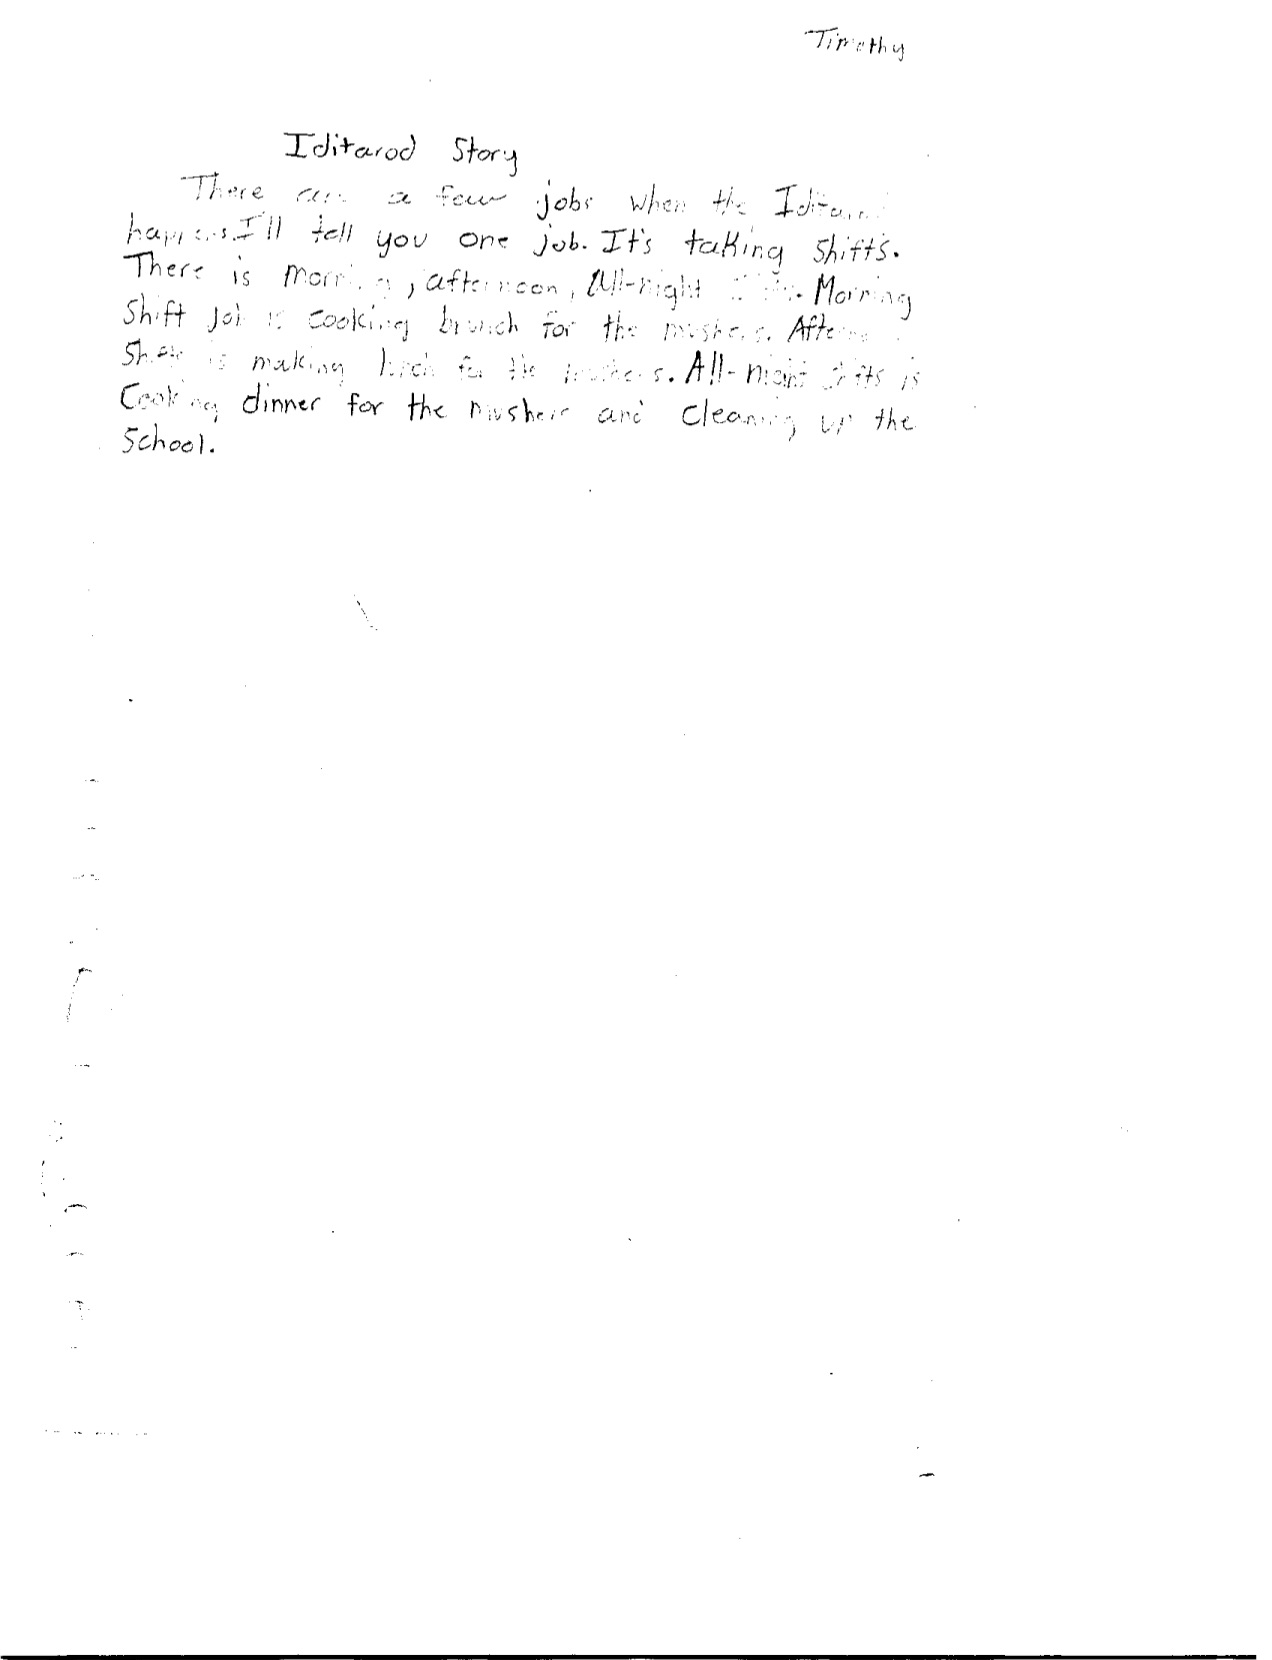 Timothy
Iditarod Story
There are a few jobs when the Iditarod
happens. I'll tell you one job. It's taking shifts.
There is morning, afternoon, All-night shifts. Morning
Shift job is cooking brunch for the mushers. Afternoon
Shift is making lunch for the mushers. All-night shifts is
Cooking dinner for the mushers and cleaning up the
School.